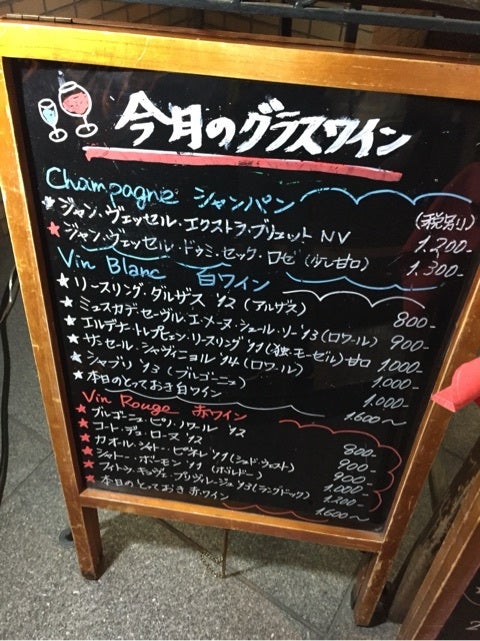 今月のグラスワイン
Champagne シャンパン (税別)
★ジャン・ヴェッセル・エクストラ・ブリュット NV 1.200-
★ジャン・ヴェッセル・ドゥミ・セック・ロゼ (少し甘口) 1.300-
Vin Blanc 白ワイン
★リースリング・ダルザス '12 (アルザス) 800-
★ミュスカデ・セーヴル・エ・メーヌ・シュール・リー '13 (ロワール) 900-
★エルデナー・トレプヒェン・リースリング '11 (独・モーゼル) 甘口 1.000-
★サンセール・シャヴィニョル '14 (ロワール) 1.000-
★シャブリ '13 (ブルゴーニュ) 1.000-
★本日のとっておき白ワイン 1.600〜
Vin Rouge 赤ワイン
★ブルゴーニュ・ピノ・ノワール '12 800-
★コート・デュ・ローヌ '12 900-
★カオール・シャトー・ピネレ '11 (シュッド・ウエスト) 900-
★シャトー・ボーモン '11 (ボルドー) 1.000-
★ブリヴレージュ '13 (ラングドック) 1.200-
★本日のとっておき赤ワイン 1.600〜